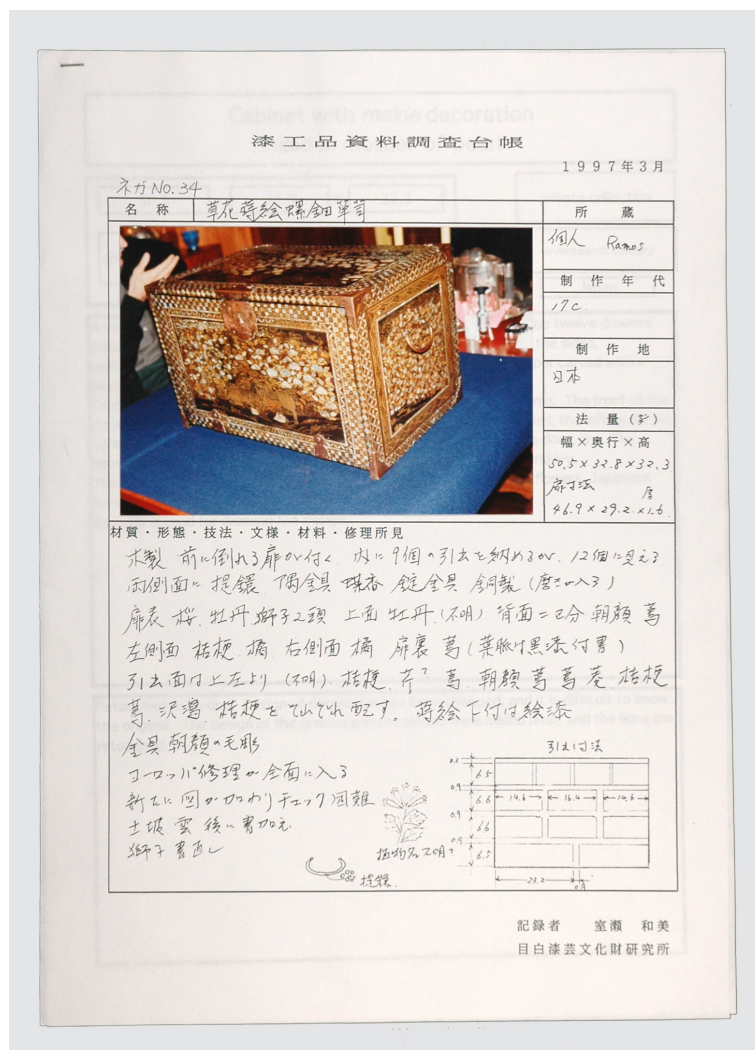 Cabinet with makie decoration
漆工品資料調査台帳
1997年3月
ネガNo.34
名称 草花蒔絵螺鈿箪笥
所蔵
個人 Ramos
制作年代
17c.
制作地
日本
法量(㌢)
幅×奥行×高
50.5×32.8×32.3
扉寸法 厚
46.9×29.2×1.6
材質・形態・技法・文様・材料・修理所見
木製 前に倒れる扉が付く 内に9個の引出を納めるが、12個に見える
両側面に提鐶 隅金具 蝶番 錠金具 銅製(磨きの入る)
扉表 桜、牡丹、獅子2頭 上面 牡丹、(不明) 背面 二区分 朝顔 蔦
左側面 桔梗、橘 右側面 橘 扉裏 蔦(葉脈は黒漆付書)
引出面は上左より(不明)、桔梗、芹? 蔦、朝顔 蔦 蔦 葵、桔梗
蔦、沢瀉 桔梗をそれぞれ配す。 蒔絵下付は絵漆
金具 朝顔の毛彫
ヨーロッパ修理が全面に入る
新たに図が加わりチェック困難
土坡、雲 後に書加え
獅子 書直し
植物名不明?
提鐶
引出寸法
0.9
6.5
0.9
6.6
0.9
6.6
6.5
14.6 16.4 14.6
23.2
0.9
記録者 室瀬 和美
目白漆芸文化財研究所